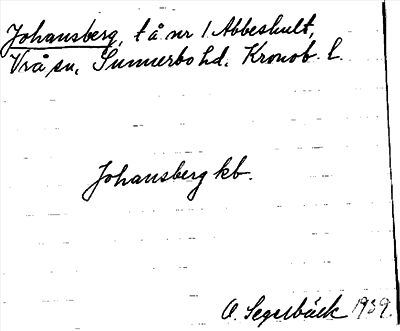 Johansberg, t å nr 1 Abbeshult,
Vrå sn, Sunnerbo hd. Kronob. l.
Johansberg kb.
O. Segerbäck 1939.